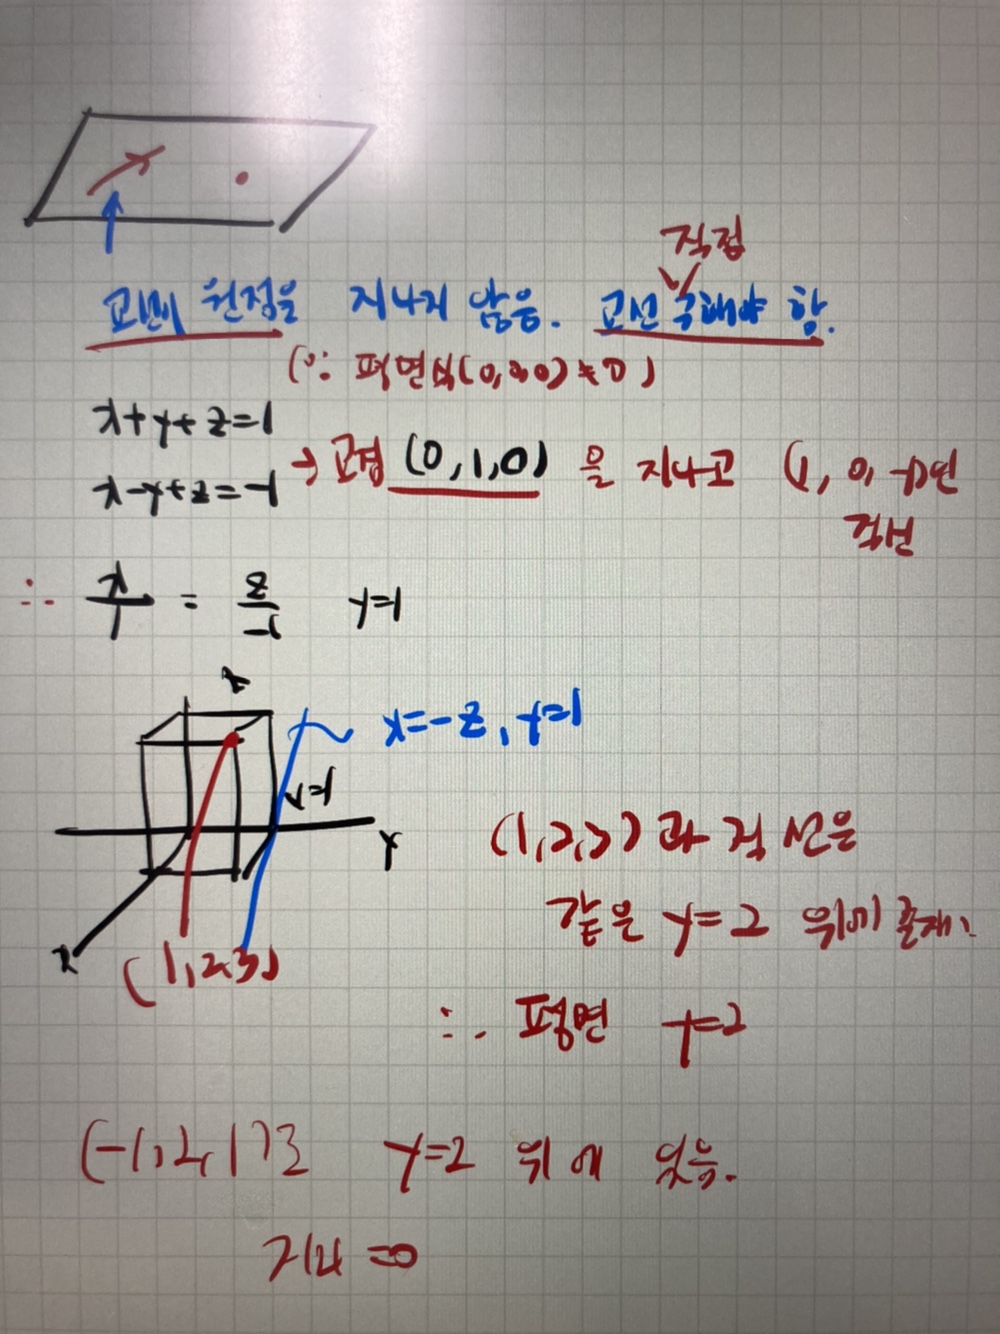 직접
교선이 원점을 지나지 않음. 교선 구해야 함.
(∵ 평면식(0,0,0)≠0)
x+y+z=1
x-y+z=-1 → 교점 (0,1,0) 을 지나고 (1, 0, -1)인
직선
∴ x/1 = z/-1 y=1
z
x=-z, y=1
y=1
y
x
(1,2,3)
(1,2,3)과 직선은
같은 y=2 위에 존재.
∴ 평면 y=2
(-1,2,1)도 y=2 위에 있음.
거리=0